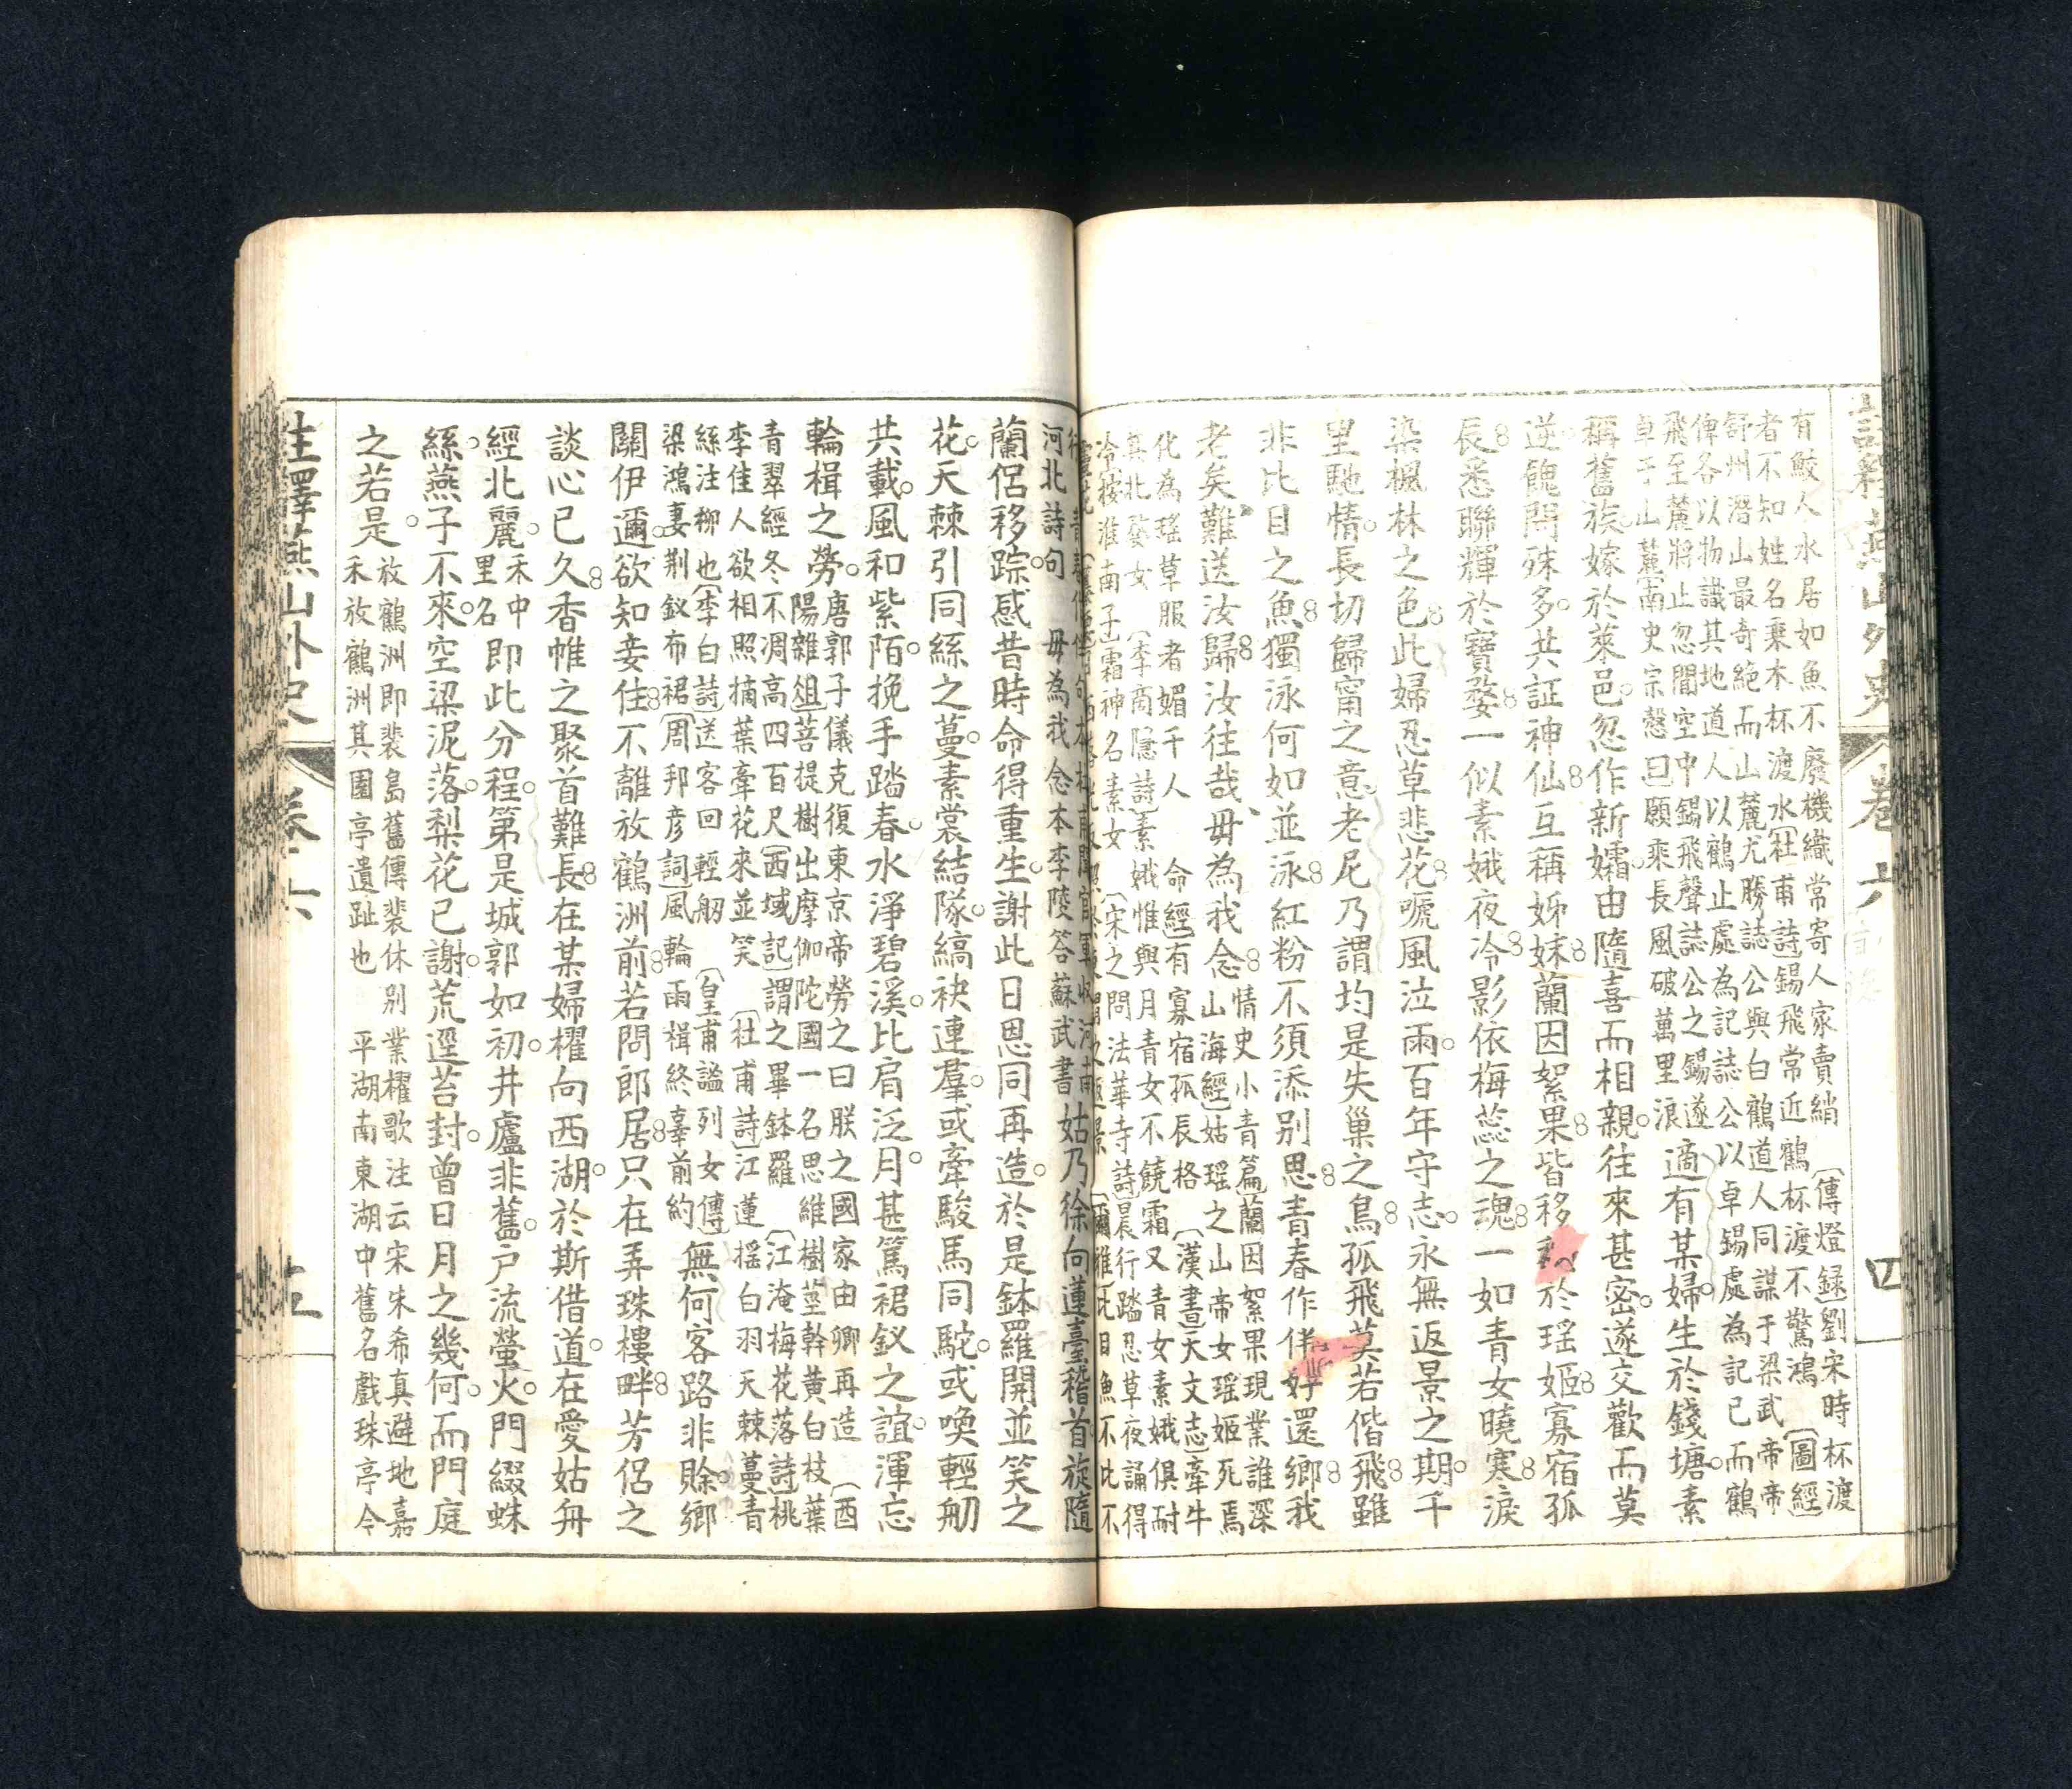 註釋燕山外史 卷六 四
有鮫人水居如魚不廢機織常寄人家賣綃 〔傳燈錄〕劉宋時杯渡
者不知姓名乘木杯渡水〔杜甫詩〕錫飛常近鶴杯渡不驚鴻 〔圖經〕
舒州潛山最奇絕而山麓尤勝誌公與白鶴道人同謀于梁武帝帝
俾各以物識其地道人以鶴止處為記誌公以卓錫處為記已而鶴
飛至麓將止忽聞空中錫飛聲誌公之錫遂
卓于山麓〔南史宗慤曰〕願乘長風破萬里浪
適有某婦生於錢塘。素
稱舊族。嫁於萊邑。忽作新孀。由隨喜而相親。往來甚密。遂交歡而莫
逆。餽問殊多。共証神仙。互稱姊妹。蘭因絮果。皆移於瑤姬。寡宿孤
辰。悉聯輝於寶婺。一似素娥夜冷。影依梅蕊之魂。一如青女曉寒。淚
染楓林之色。此婦忍草悲花。唬風泣雨。百年守志。永無返景之期。千
里馳情。長切歸甯之意。老尼乃謂均是失巢之鳥。孤飛莫若偕飛。雖
非比目之魚。獨泳何如並泳。紅粉不須添別思。青春作伴好還鄉。我
老矣、難送汝歸。汝往哉、毋為我念。
情史小青篇〕蘭因絮果現業誰深
山海經〕姑瑤之山帝女瑤姬死焉
化為瑤草服者媚千人 命經〕有寡宿孤辰格 〔漢書天文志〕牽牛
其北婺女 〔李商隱詩〕素娥惟與月青女不饒霜又青女素娥俱耐
冷按淮南子〕霜神名素女 〔宋之問法華寺詩〕晨行踏忍草夜誦得
〔爾雅〕比目魚不比不
行 青春作伴句本杜甫聞官軍收河南
河北詩句 毋為我念本李陵答蘇武書
姑乃徐向蓮臺稽首。旋隨
蘭侶移踪。感昔時命得重生。謝此日恩同再造。於是鉢羅開並笑之
花。天棘引同絲之蔓。素裳結隊。縞袂連羣。或牽駿馬同馱。或喚輕舠
共載。風和紫陌。挽手踏春。水淨碧溪。比肩泛月。甚篤裙釵之誼。渾忘
輪楫之勞。
唐郭子儀克復東京帝勞之曰朕之國家由卿再造 〔酉
陽雜俎〕菩提樹出摩伽陀國一名思維樹莖幹黃白枝葉
青翠經冬不凋高四百尺〔西域記〕謂之畢鉢羅 〔江淹梅花落詩〕桃
李佳人欲相照摘葉牽花來並笑 〔杜甫詩〕江蓮搖白羽天棘蔓青
絲注柳也〔李白詩〕送客回輕舠 〔皇甫謐列女傳〕
梁鴻妻荆釵布裙〔周邦彥詞〕風輪雨楫終辜前約
無何客路非賒。鄉
關伊邇。欲知妾住。不離放鶴洲前。若問郎居。只在弄珠樓畔。芳侶之
談心已久。香帷之聚首難長。在某婦櫂向西湖。於斯借道。在愛姑舟
經北麗。
禾中
里名
即此分程。第是城郭如初。井廬非舊。戶流螢火。門綴蛛
絲。燕子不來。空梁泥落。梨花已謝。荒逕苔封。曾日月之幾何。而門庭
之若是。
放鶴洲即裴島舊傳裴休別業櫂歌注云宋朱希真避地嘉
禾放鶴洲其園亭遺趾也 平湖南東湖中舊名戲珠亭今
註釋燕山外史 卷六 五